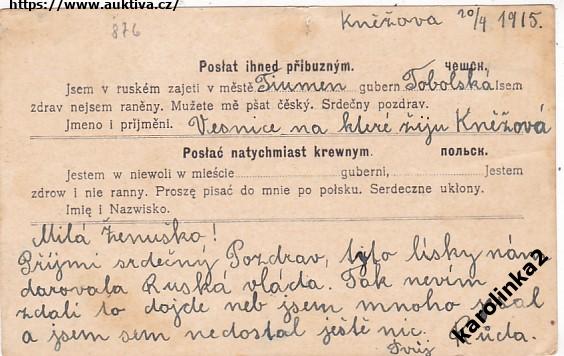 https://www.auktiva.cz/
876
Kněžova 20/4 1915.
Poslat ihned přibuzným. чешск.
Jsem v ruském zajeti v městě Tiumen gubern Tobolská Isem
zdrav nejsem raněny. Mužete mě pšat čěský. Srdečny pozdrav.
Jmeno i prijměni. Vesnice na které žiju Kněžová
Posłać natychmiast krewnym. польск.
Jestem w niewoli w mieście guberni, Jestem
zdrow i nie ranny. Proszę pisać do mnie po polsku. Serdeczne ukłony.
Imię i Nazwisko.
Milá Ženuško!
Přijmi srdečný Pozdrav, tyto lísky nám
darovala Ruska vláda. Tak nevím
zdali to dojde neb jsem mnoho psal
a jsem sem nedostal ještě nic.
Tvůj
karolinka2